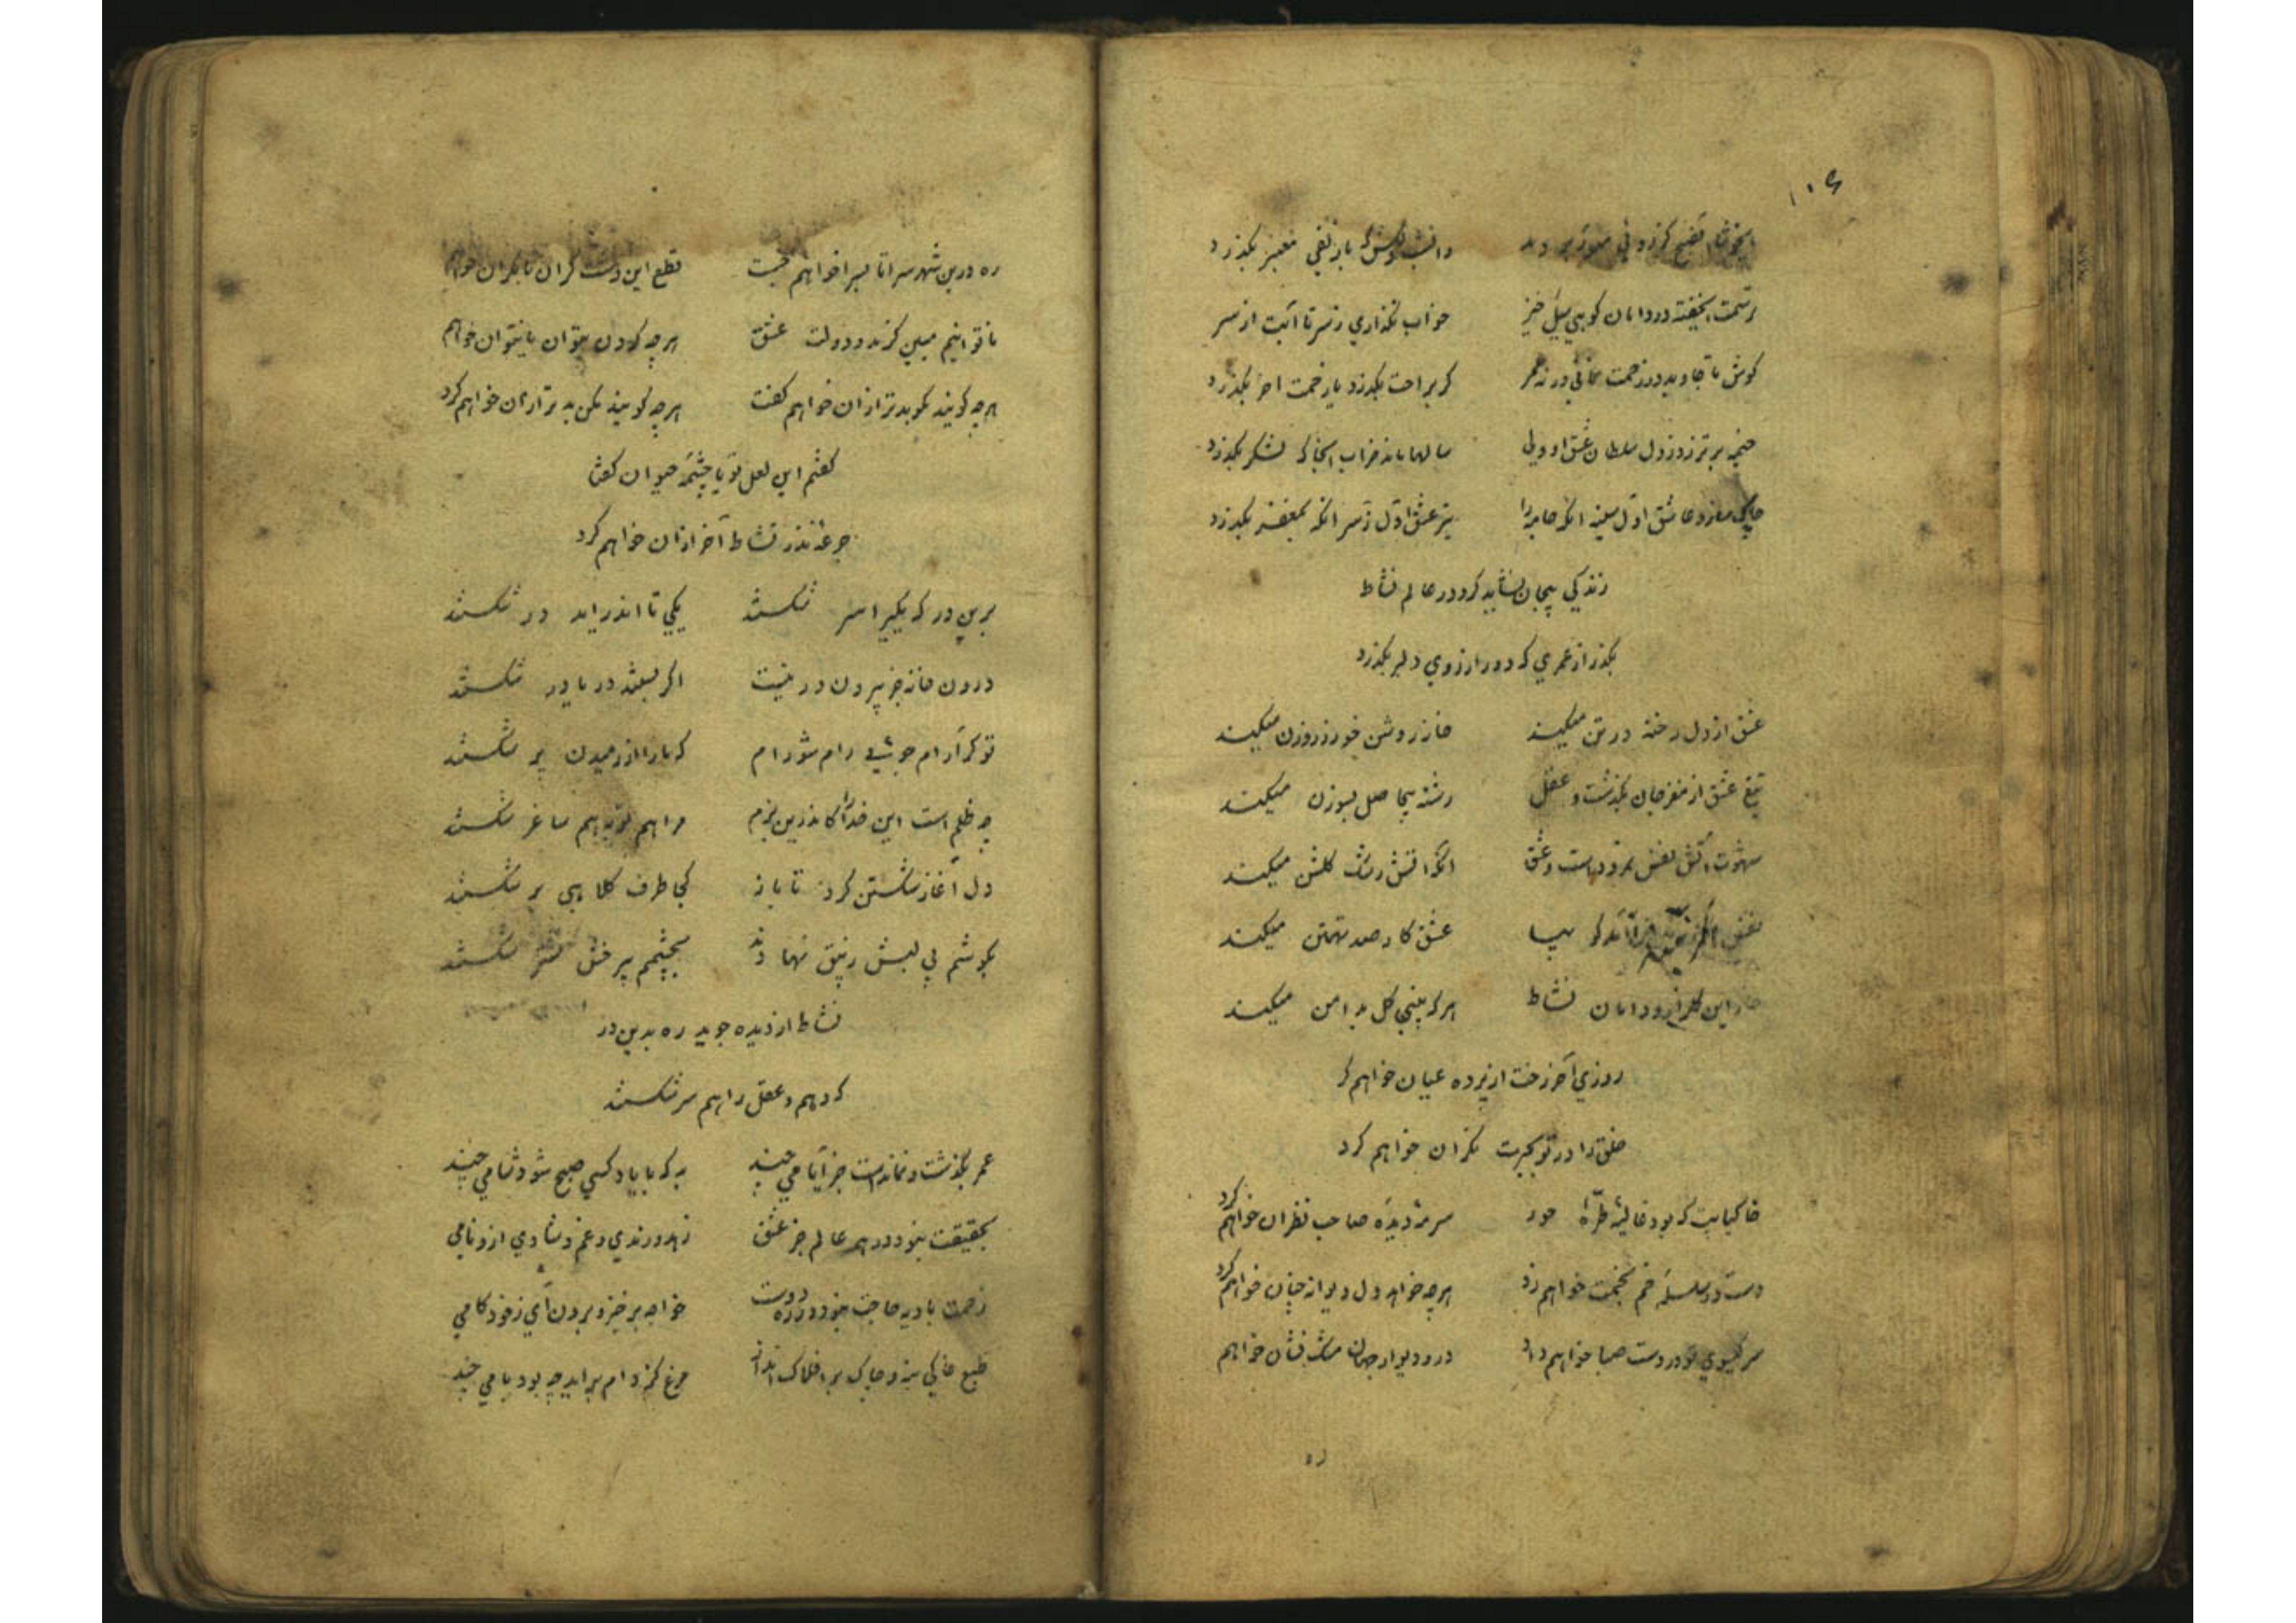 ۱۰۶
بگذرد
خواب نگذاری ز سر تا آبت از سر
کوش تا جاوید در زحمت نمانی ورنه عمر
کر براحت بگذرد یا زحمت آخر بگذرد
خیمه برتر زد ز دل سلطان عشق او ولی
سالها ماند خراب آنجا که لشکر بگذرد
تیر عشق اول ز سر آنکه ز مغفر بگذرد
زندگی بیجان نشاید کرد در عالم نشاط
بگذر از عمری که دور از روی دلبر بگذرد
عشق از دل رخنه در تن میکند
خانه روشن خور ز روزن میکند
تیغ عشق از مغز جان بگذشت و عقل
رشته بیجا صل بسوزن میکند
شهوت آتش نفس نمرودست و عشق
آنکه آتش رشک گلشن میکند
عشق کار صد تهمتن میکند
این دامان نشاط
هر که بینی گل بدامن میکند
روزی آخر رخت از پرده عیان خواهم کرد
خلق را در تو بحیرت نگران خواهم کرد
خاکپایت که بود غالیهٔ طرّهٔ حور
سرمهٔ دیدهٔ صاحب نظران خواهم کرد
دست در سلسلهٔ خم بخمت خواهم زد
هرچه خواهد دل دیوانه چنان خواهم کرد
سر گیسوی تو در دست صبا خواهم داد
در و دیوار جهان مشک فشان خواهم
ره
ره درین شهر سراتا بسرا خواهم جست
قطع این دشت کران تا بکران خواهم
ناتوانیم مبین کز مدد دولت عشق
هرچه کردن بتوان یا نتوان خواهم
هرچه گویند مگو بدتر از آن خواهم گفت
هرچه گویند مکن بدتر از آن خواهم کرد
گفتم این لعل تو یا چشمهٔ حیوان گفتا
جرعهٔ نذر نشاط آخر از آن خواهم کرد
برین در که یکی را سر شکستند
یکی تا اندر آید در شکستند
درون خانه جز بیرون در نیست
اگر بستند در یا در شکستند
تو گر آرام جوئی رام شو رام
که ما را از رمیدن پر شکستند
چه ظلم است این خدا را کاندرین بزم
مرا هم توبه هم ساغر شکستند
دل آغاز شکستن کرد تا باز
کجا طرف کلاهی بر شکستند
بگوشم بی لبش
بچشمم بی رخش نشتر شکستند
نشاط از دیده جوید ره بدین در
که وهم و عقل را هم سر شکستند
عمر بگذشت و نماندست جز ایامی چند
به که با یاد کسی صبح شود شامی چند
بحقیقت نبود در همه عالم جز عشق
زهد و رندی و غم و شادی ازو نامی
زحمت بادیه حاجت نبود در ره دوست
خواجه برخیز و برون آی ز خود گامی
طبع خاکی بنه و خاک بر افلاک انداز
مرغ کز دام برآید چه بود بامی چند